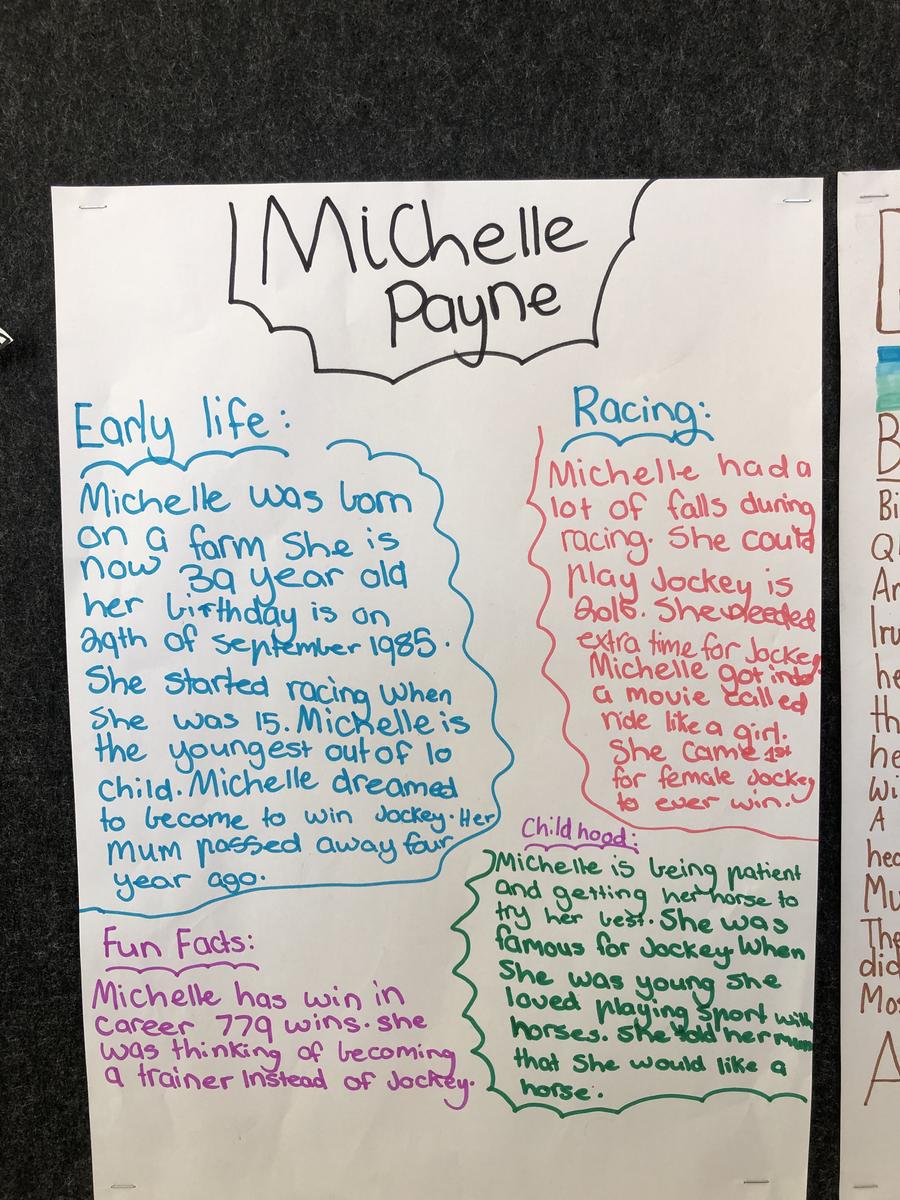 Michelle
Payne
Early life:
Michelle was born
on a farm She is
now 39 year old
her birthday is on
29th of september 1985.
She started racing when
She was 15. Michelle is
the youngest out of 10
child. Michelle dreamed
to become to win Jockey. Her
Mum passed away four
year ago.
Racing:
Michelle had a
lot of falls during
racing. She could
play Jockey is
2015. She needed
extra time for Jockey
Michelle got into
a movie called
ride like a girl.
She came 1st
for female Jockey
to ever win.
Childhood:
Michelle is being patient
and getting her horse to
try her best. She was
famous for Jockey. When
She was young She
loved playing sport with
horses. She told her mum
that She would like a
horse.
Fun Facts:
Michelle has win in
career 779 wins. she
was thinking of becoming
a trainer Instead of Jockey.
B
Bi
Q
Ar
Iru
he
th
he
wi
A
hea
Mu
The
did
Mos
A